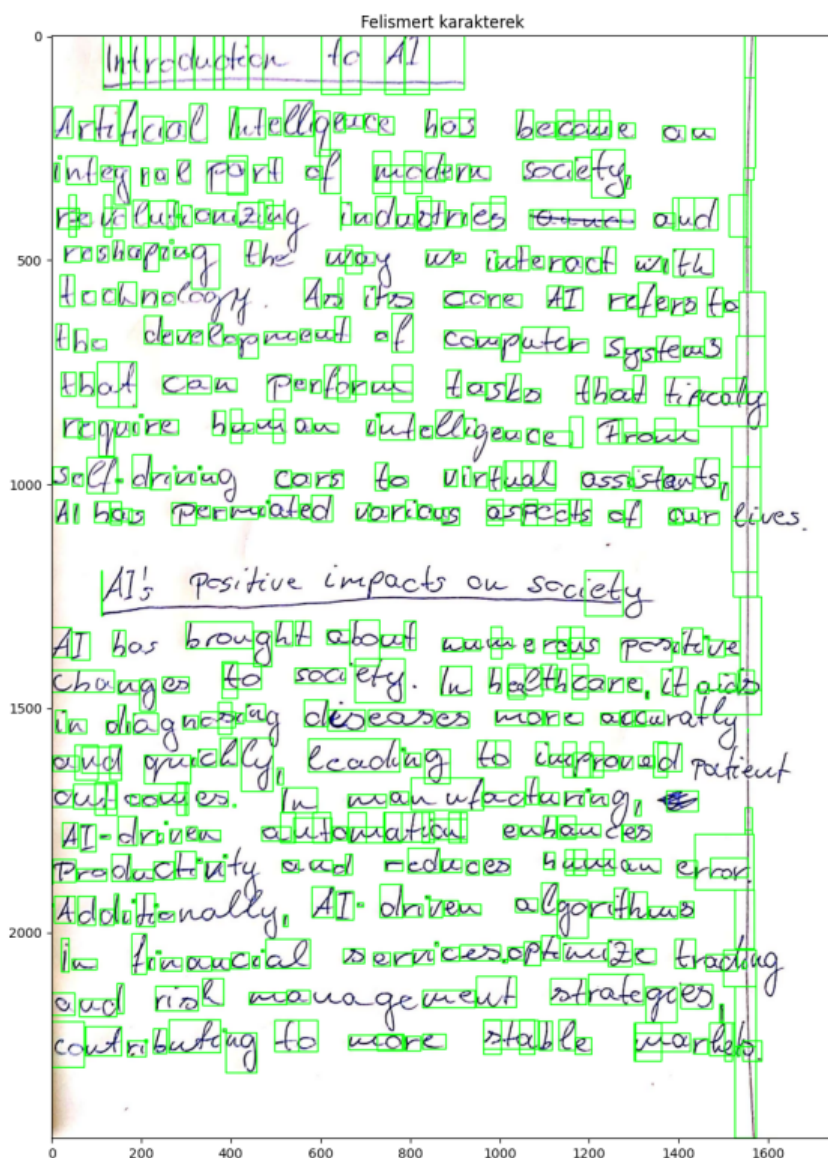 Felismert karakterek
Introduction to AI
Artificial Intelligence has become an
integral part of modern society,
revolutionizing industries and
reshaping the way we interact with
technology. As its core AI refers to
the development of computer systems
that can perform tasks that tipicaly
require human intelligence. From
self-driving cars to virtual assistants,
AI has permiated various aspects of our lives.
AI's positive impacts on society
AI has brought about numerous positive
changes to society. In healthcare, it aids
in diagnosing diseases more accuratly
and quickly, leading to improved patient
outcomes. In manufacturing,
AI-driven automation enhances
Productivity and reduces human error.
Additionally, AI-driven algorithms
in financial services optimize trading
and risk management strategies,
contributing to more stable markets.
0
500
1000
1500
2000
0 200 400 600 800 1000 1200 1400 1600